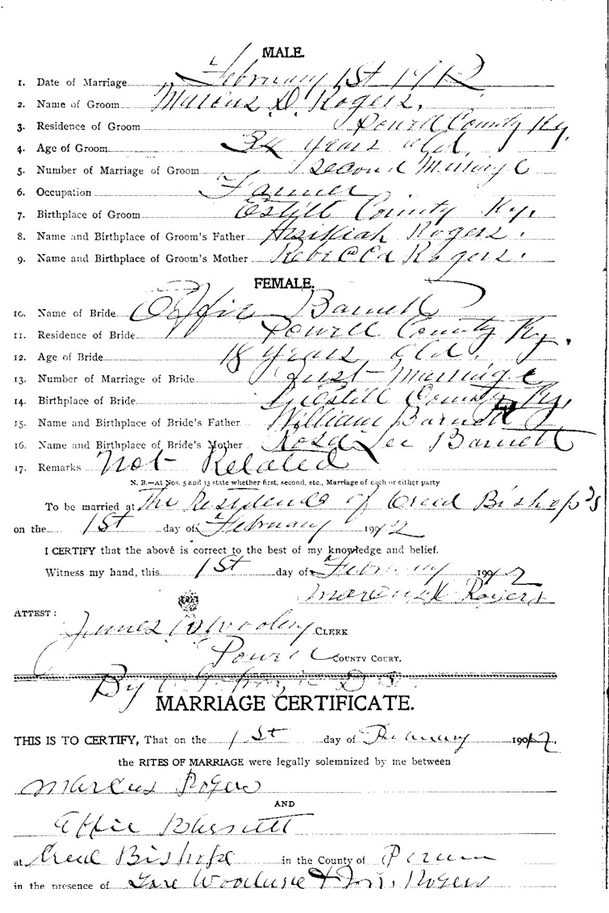 MALE.
1. Date of Marriage February 1st 1912
2. Name of Groom Marcus. D. Rogers.
3. Residence of Groom Powell County Ky.
4. Age of Groom 34 years old.
5. Number of Marriage of Groom second Marriage
6. Occupation Farmer
7. Birthplace of Groom Estill County Ky.
8. Name and Birthplace of Groom's Father Rogers.
9. Name and Birthplace of Groom's Mother Rebecca Rogers.
FEMALE.
10. Name of Bride Effie Barnett
11. Residence of Bride Powell County Ky.
12. Age of Bride 18 years old.
13. Number of Marriage of Bride first Marriage
14. Birthplace of Bride Estill County Ky,
15. Name and Birthplace of Bride's Father William Barnett
16. Name and Birthplace of Bride's Mother Rosa Lee Barnett
17. Remarks Not Related
N. B.—At Nos. 5 and 13 state whether first, second, etc., Marriage of each or either party
To be married at The Residence of Creed Bishop's
on the 1st day of February 1912
I CERTIFY that the above is correct to the best of my knowledge and belief.
Witness my hand, this 1st day of February 1912
Marcus Rogers
ATTEST:
James CLERK
Powell COUNTY COURT.
By D.C.
MARRIAGE CERTIFICATE.
THIS IS TO CERTIFY, That on the 1st day of February 1912
the RITES OF MARRIAGE were legally solemnized by me between
Marcus Rogers
AND
Effie Barnett
at Creed Bishops in the County of
in the presence of Rogers